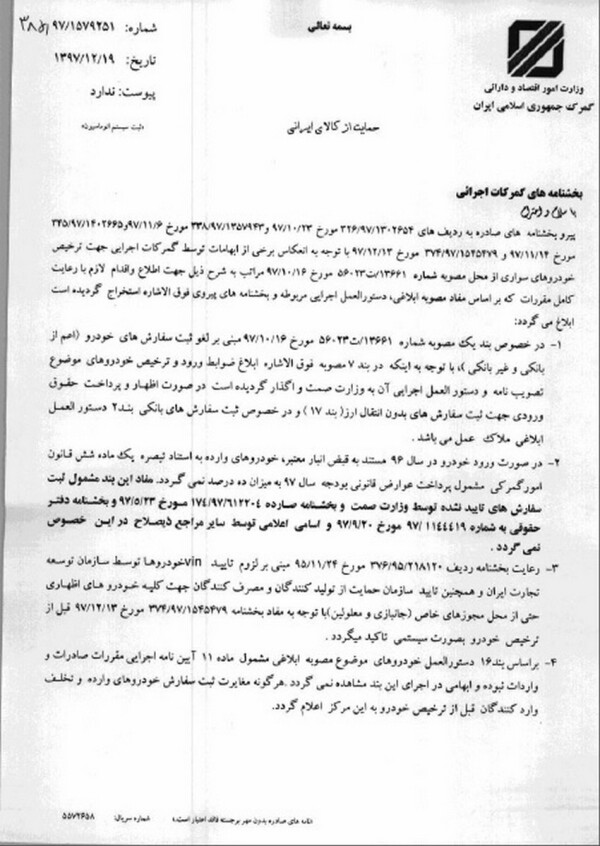 بسمه تعالی
شماره: ۹۷/۱۵۷۹۲۵۱/
تاریخ: ۱۳۹۷/۱۲/۱۹
پیوست: ندارد
«ثبت سیستم اتوماسیون»
وزارت امور اقتصاد و دارائی
گمرک جمهوری اسلامی ایران
حمایت از کالای ایرانی
بخشنامه های گمرکات اجرائی
با سلام و احترام
پیرو بخشنامه های صادره به ردیف های ۳۲۶/۹۷/۱۳۰۲۶۵۴ مورخ ۹۷/۱۰/۲۳ و۳۳۸/۹۷/۱۳۵۷۹۴۳ مورخ ۹۷/۱۱/۶و۳۴۵/۹۷/۱۴۰۲۶۶۵
مورخ ۹۷/۱۱/۱۴ و ۳۷۴/۹۷/۱۵۴۵۴۷۹ مورخ ۹۷/۱۲/۱۳ با توجه به انعکاس برخی از ابهامات توسط گمرکات اجرایی جهت ترخیص
خودروهای سواری از محل مصوبه شماره ۱۳۶۶۱/ت۵۶۰۲۳ مورخ ۹۷/۱۰/۱۶ مراتب به شرح ذیل جهت اطلاع واقدام لازم با رعایت
کامل مقررات که بر اساس مفاد مصوبه ابلاغی، دستورالعمل اجرایی مربوطه و بخشنامه های پیروی فوق الاشاره استخراج گردیده است
ابلاغ می گردد:
۱- در خصوص بند یک مصوبه شماره ۱۳۶۶۱/ت۵۶۰۲۳ مورخ ۹۷/۱۰/۱۶ مبنی بر لغو ثبت سفارش های خودرو (اعم از
بانکی و غیر بانکی )، با توجه به اینکه در بند ۷ مصوبه فوق الاشاره ابلاغ ضوابط ورود و ترخیص خودروهای موضوع
تصویب نامه و دستور العمل اجرایی آن به وزارت صمت واگذار گردیده است در صورت اظهار و پرداخت حقوق
ورودی جهت ثبت سفارش های بدون انتقال ارز( بند ۱۷ ) و در خصوص ثبت سفارش های بانکی بند۲ دستور العمل
ابلاغی ملاک عمل می باشد .
۲- در صورت ورود خودرو در سال ۹۶ مستند به قبض انبار معتبر، خودروهای وارده به استناد تبصره یک ماده شش قانون
امورگمرکی مشمول پرداخت عوارض قانونی بودجه سال ۹۷ به میزان ده درصد نمی گردد. مفاد این بند مشمول ثبت
سفارش های تایید نشده توسط وزارت صمت و بخشنامه صادره ۱۷۴/۹۷/۶۱۲۲۰۴ مورخ ۹۷/۵/۲۳ و بخشنامه دفتر
حقوقی به شماره ۹۷/ ۱۱۴۴۴۱۹ مورخ ۹۷/۹/۲۰ و اسامی اعلامی توسط سایر مراجع ذیصلاح در این خصوص
نمی گردد .
۳- رعایت بخشنامه ردیف ۳۷۶/۹۵/۲۱۸۱۲۰ مورخ ۹۵/۱۱/۲۴ مبنی بر لزوم تایید vinخودروها توسط سازمان توسعه
تجارت ایران و همچنین تایید سازمان حمایت از تولید کنندگان و مصرف کنندگان جهت کلیه خودرو های اظهاری
حتی از محل مجوزهای خاص (جانبازی و معلولین)با توجه به مفاد بخشنامه ۳۷۴/۹۷/۱۵۴۵۴۷۹ مورخ ۹۷/۱۲/۱۳ قبل از
ترخیص خودرو بصورت سیستمی تاکید میگردد .
۴- براساس بند۱۶ دستورالعمل خودروهای موضوع مصوبه ابلاغی مشمول ماده ۱۱ آیین نامه اجرایی مقررات صادرات و
واردات نبوده و ابهامی در اجرای این بند مشاهده نمی گردد .هرگونه مغایرت ثبت سفارش خودروهای وارده و تخلف
وارد کنندگان قبل از ترخیص خودرو به این مرکز اعلام گردد.
«نامه های صادره بدون مهر برجسته فاقد اعتبار است.»
شماره سریال: ۵۵۷۲۶۵۸